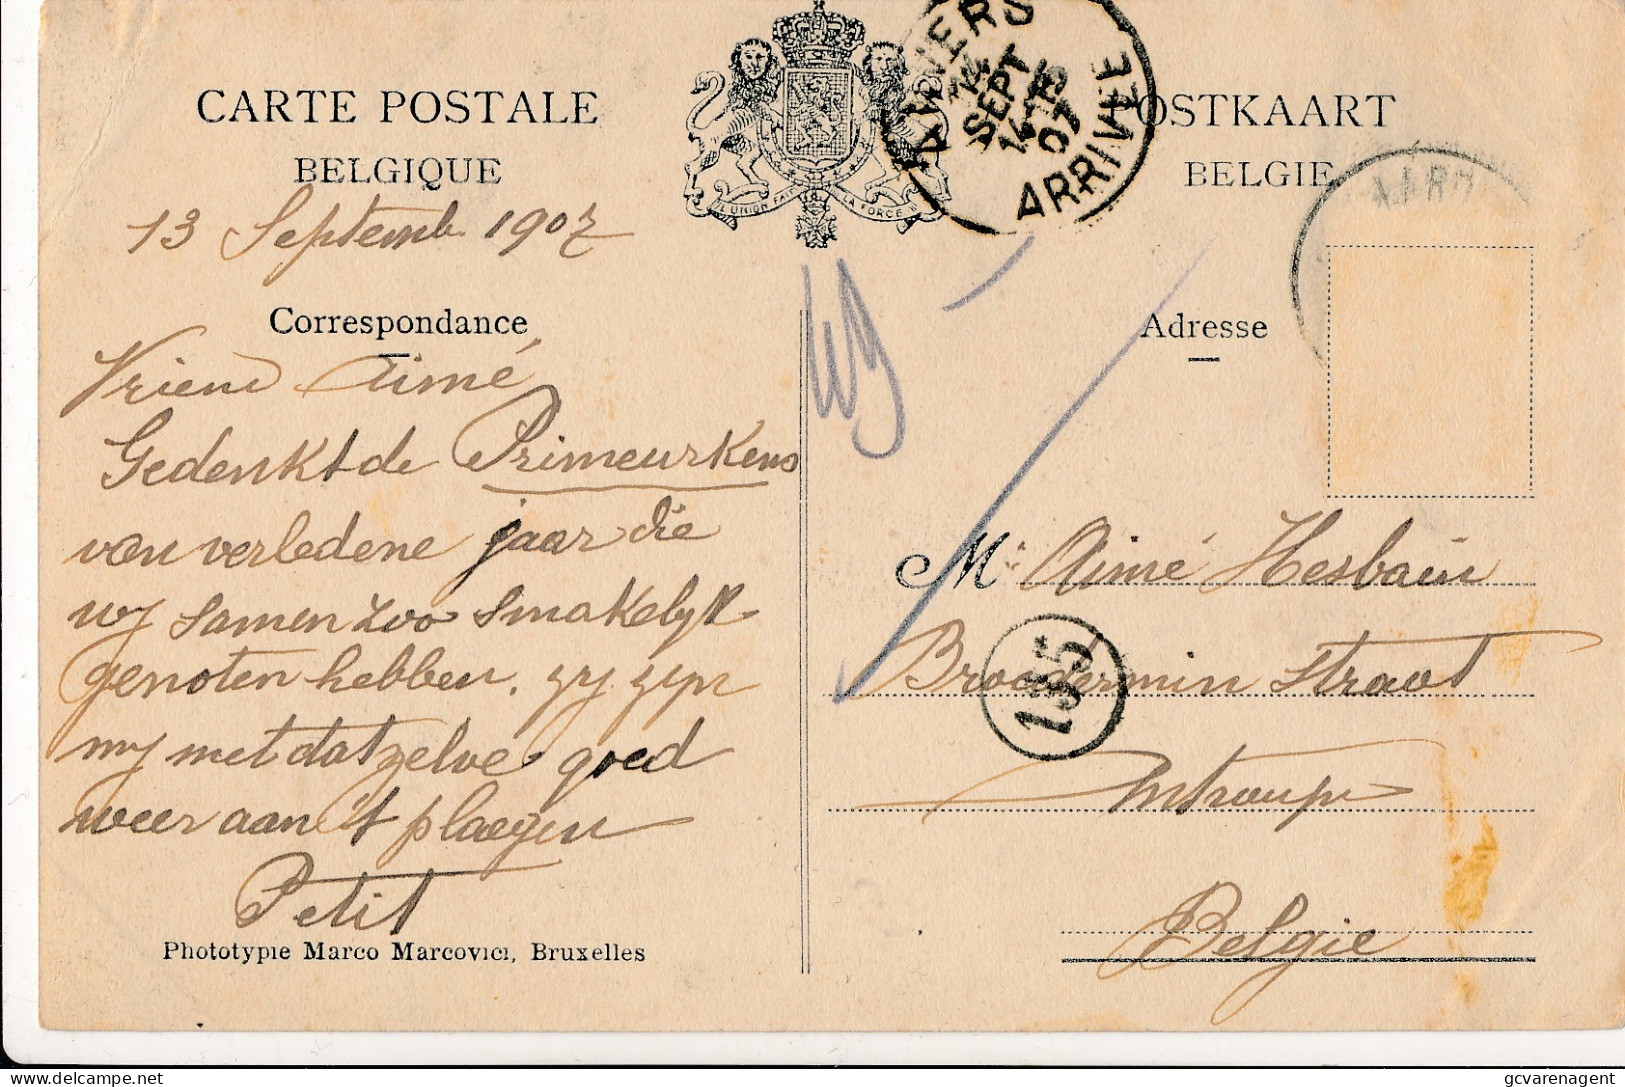 CARTE POSTALE
BELGIQUE
L'UNION FAIT LA FORCE
ANVERS
14
SEPT
14-15
07
ARRIVÉE
POSTKAART
BELGIE
13 Septemb. 1907
Correspondance
Adresse
Vriend Aimé
Gedenkt de Primeurkens
van verledene jaar die
wy samen zoo smakelyk
genoten hebben. zy zyn
my met dat zelve goed
weer aan 't plaegen
Petit
Phototypie Marco Marcovici, Bruxelles
Mr Aimé Hesbain
Broedermin Straat
135
Belgie
gcvarenagent